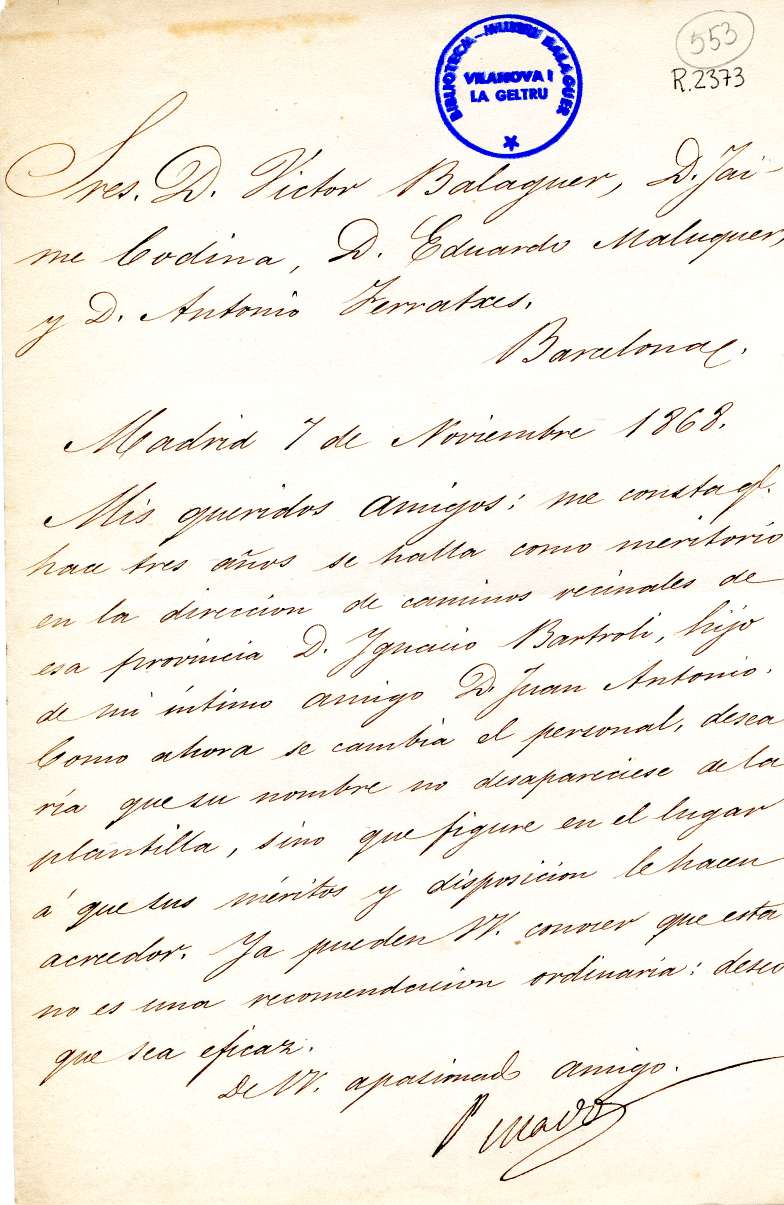 553
R.2373
BIBLIOTECA-MUSEU BALAGUER
VILANOVA I
LA GELTRU
Sres. D. Victor Balaguer, D. Jai-
me Codina, D. Eduardo Maluquer,
y D. Antonio Ferratxes.
Barcelona.
Madrid 7 de Noviembre 1868.
Mis queridos amigos: me consta q.
hace tres años se halla como meritorio
en la direccion de caminos vecinales de
esa provincia D. Ignacio Bartroli, hijo
de mi íntimo amigo D. Juan Antonio.
Como ahora se cambia el personal, desea
ría que su nombre no desapareciese de la
plantilla, sino que figure en el lugar
á que sus méritos y disposicion le hacen
acreedor. Ya pueden VV. conocer que esta
no es una recomendacion ordinaria: deseo
que sea eficaz.
De VV. apasionado amigo.